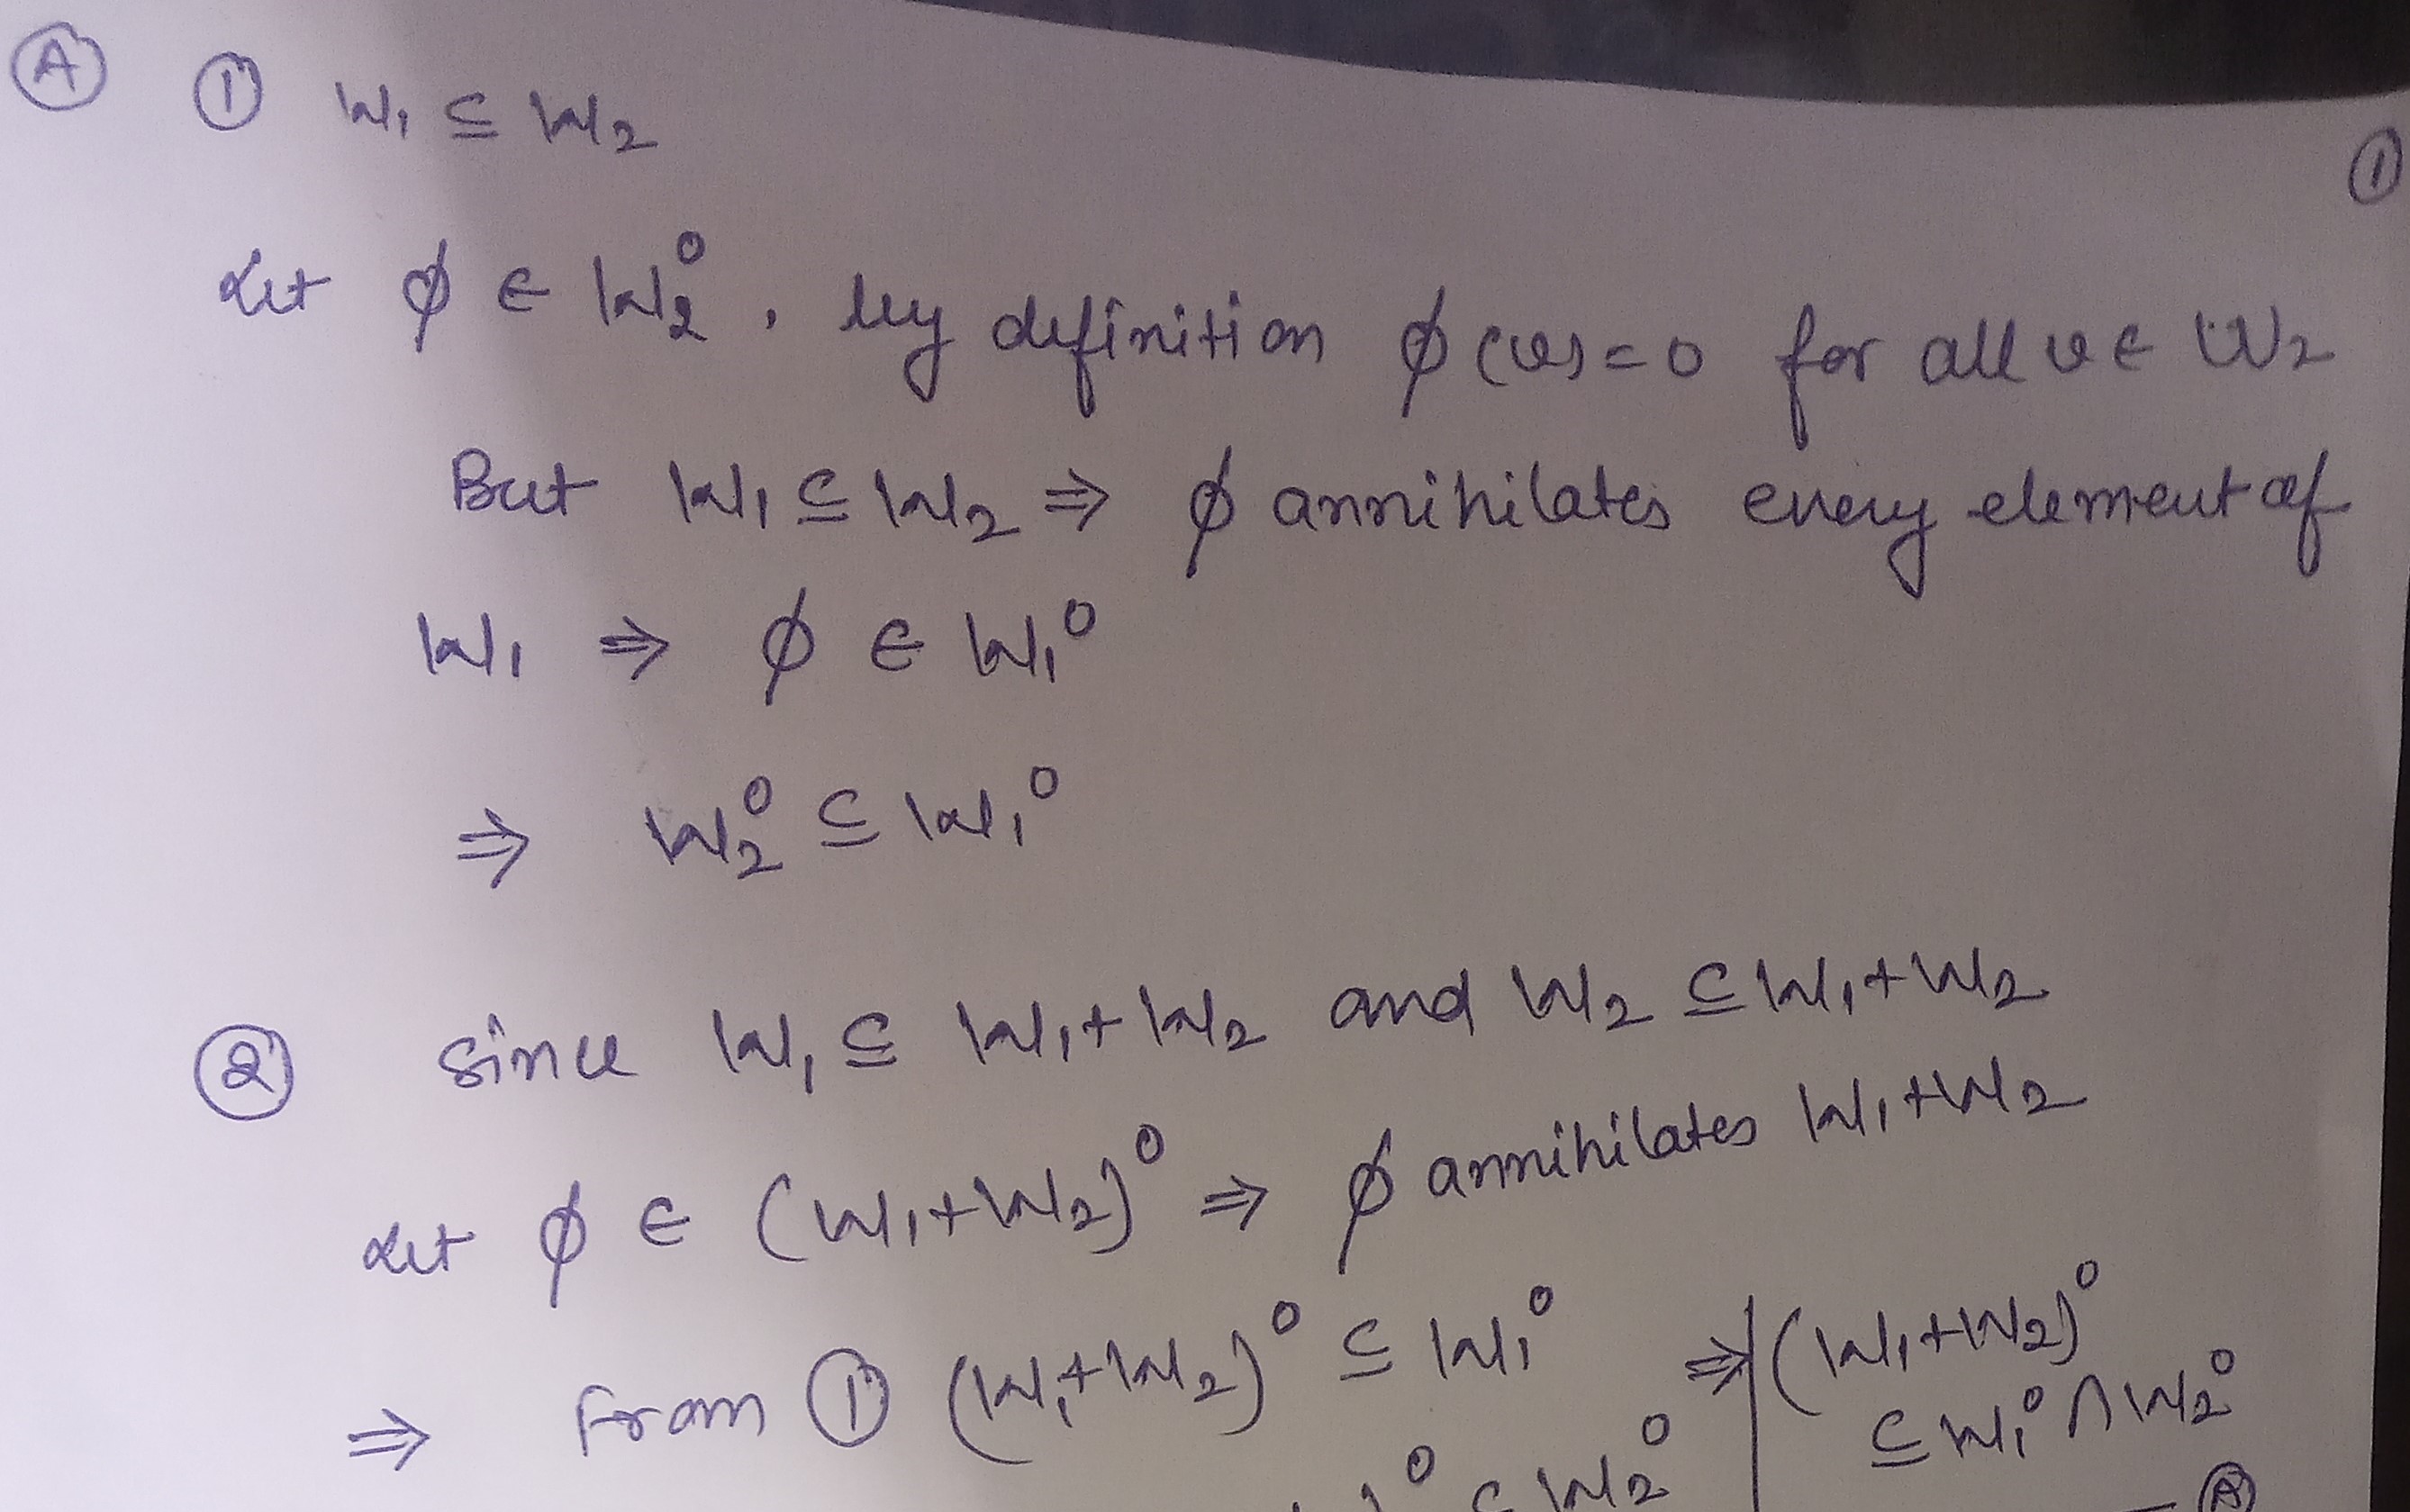 Ⓐ ① W₁ ⊆ W₂
①
Let ϕ ∈ W₂⁰, by definition ϕ(v)=0 for all v ∈ W₂
But W₁ ⊆ W₂ ⇒ ϕ annihilates every element of
W₁ ⇒ ϕ ∈ W₁⁰
⇒ W₂⁰ ⊆ W₁⁰
② Since W₁ ⊆ W₁+W₂ and W₂ ⊆ W₁+W₂
Let ϕ ∈ (W₁+W₂)⁰ ⇒ ϕ annihilates W₁+W₂
⇒ From ① (W₁+W₂)⁰ ⊆ W₁⁰ ⇒ (W₁+W₂)⁰
⊆ W₁⁰ ∩ W₂⁰
)⁰ ⊆ W₂⁰
— Ⓐ